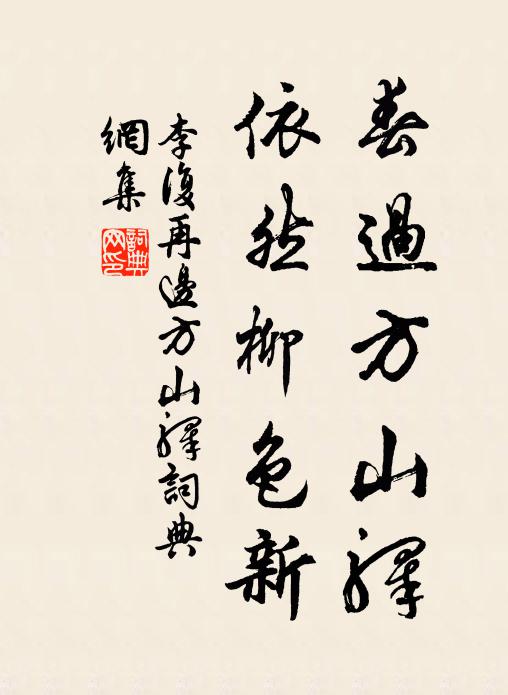 春過方山驛
依然柳色新
李復再邊方山驛詞典
網集
詞典
网印